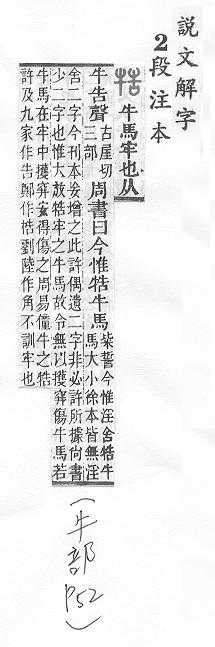 說文解字
2段注本
牿 牛馬牢也从
牛告聲 古屋切
三部
周書曰今惟牿牛馬
粊誓今惟淫舍牿牛
馬大小徐本皆無淫
舍二字今刊本妄增之此許偶遺二字非必許所據尚書
少二字也惟大放牿牢之牛馬故令無以擭穽傷牛馬若
牛馬在牢中擭穽安得傷之周易僮牛之牿
許及九家作告鄭作梏劉陸作角不訓牢也
(牛部 P52)